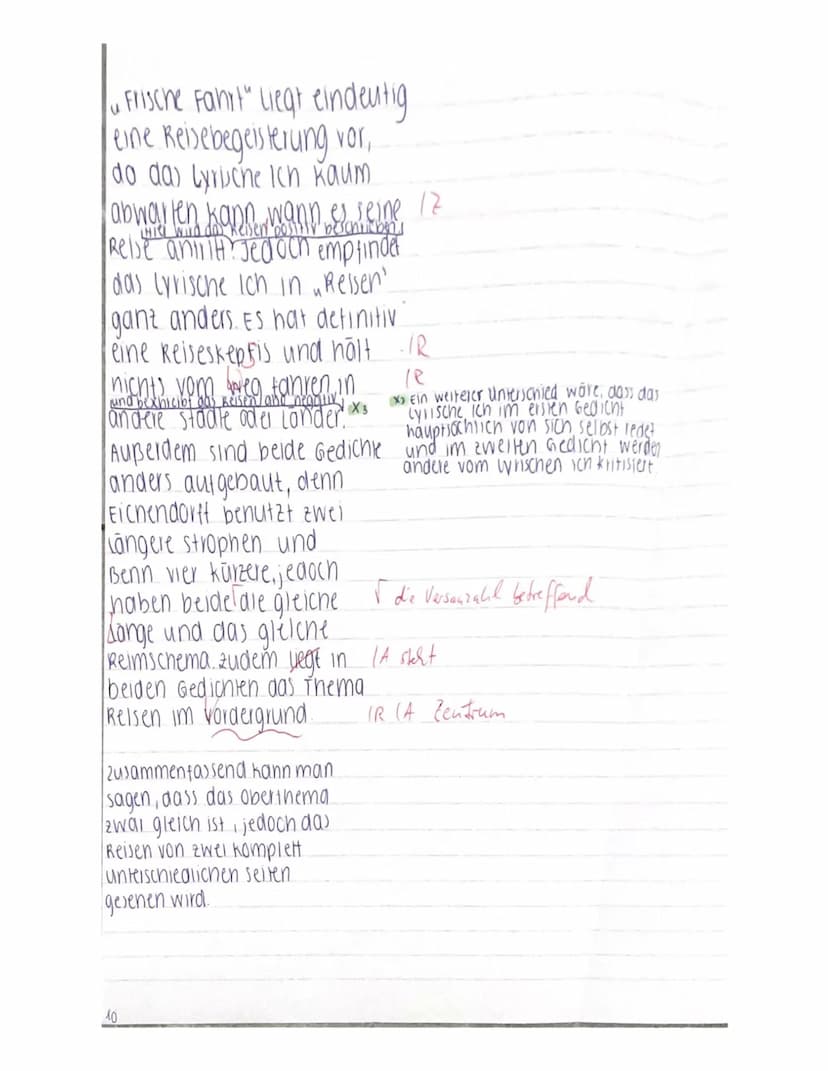 „Frische Fahrt" liegt eindeutig
eine Reisebegeisterung vor,
da das Lyrische Ich kaum
abwarten kann, wann es seine |Z
Hier wird das Reisen positiv beschrieben.
Reise antritt. Jedoch empfindet
das Lyrische Ich in „Reisen"
ganz anders. Es hat definitiv
eine Reiseskepsis und hält |R
nichts vom weg fahren, in |R
und beschreibt das Reisen also negativ
andere Städte oder Länder. x3
x3 Ein weiterer Unterschied wäre, dass das
Lyrische Ich im ersten Gedicht
hauptsächlich von sich selbst redet
und im zweiten Gedicht werden
andere vom Lyrischen Ich kritisiert
Außerdem sind beide Gedichte
anders aufgebaut, denn
Eichendorff benutzt zwei
längere Strophen und
Benn vier kürzere, jedoch
haben beide die gleiche √ die Versanzahl betreffend
Länge und das gleiche
Reimschema. Zudem liegt in |A steht
beiden Gedichten das Thema
Reisen im Vordergrund. |R |A Zentrum
Zusammenfassend kann man
sagen, dass das Oberthema
zwar gleich ist, jedoch das
Reisen von zwei komplett
unterschiedlichen Seiten
gesehen wird.
10